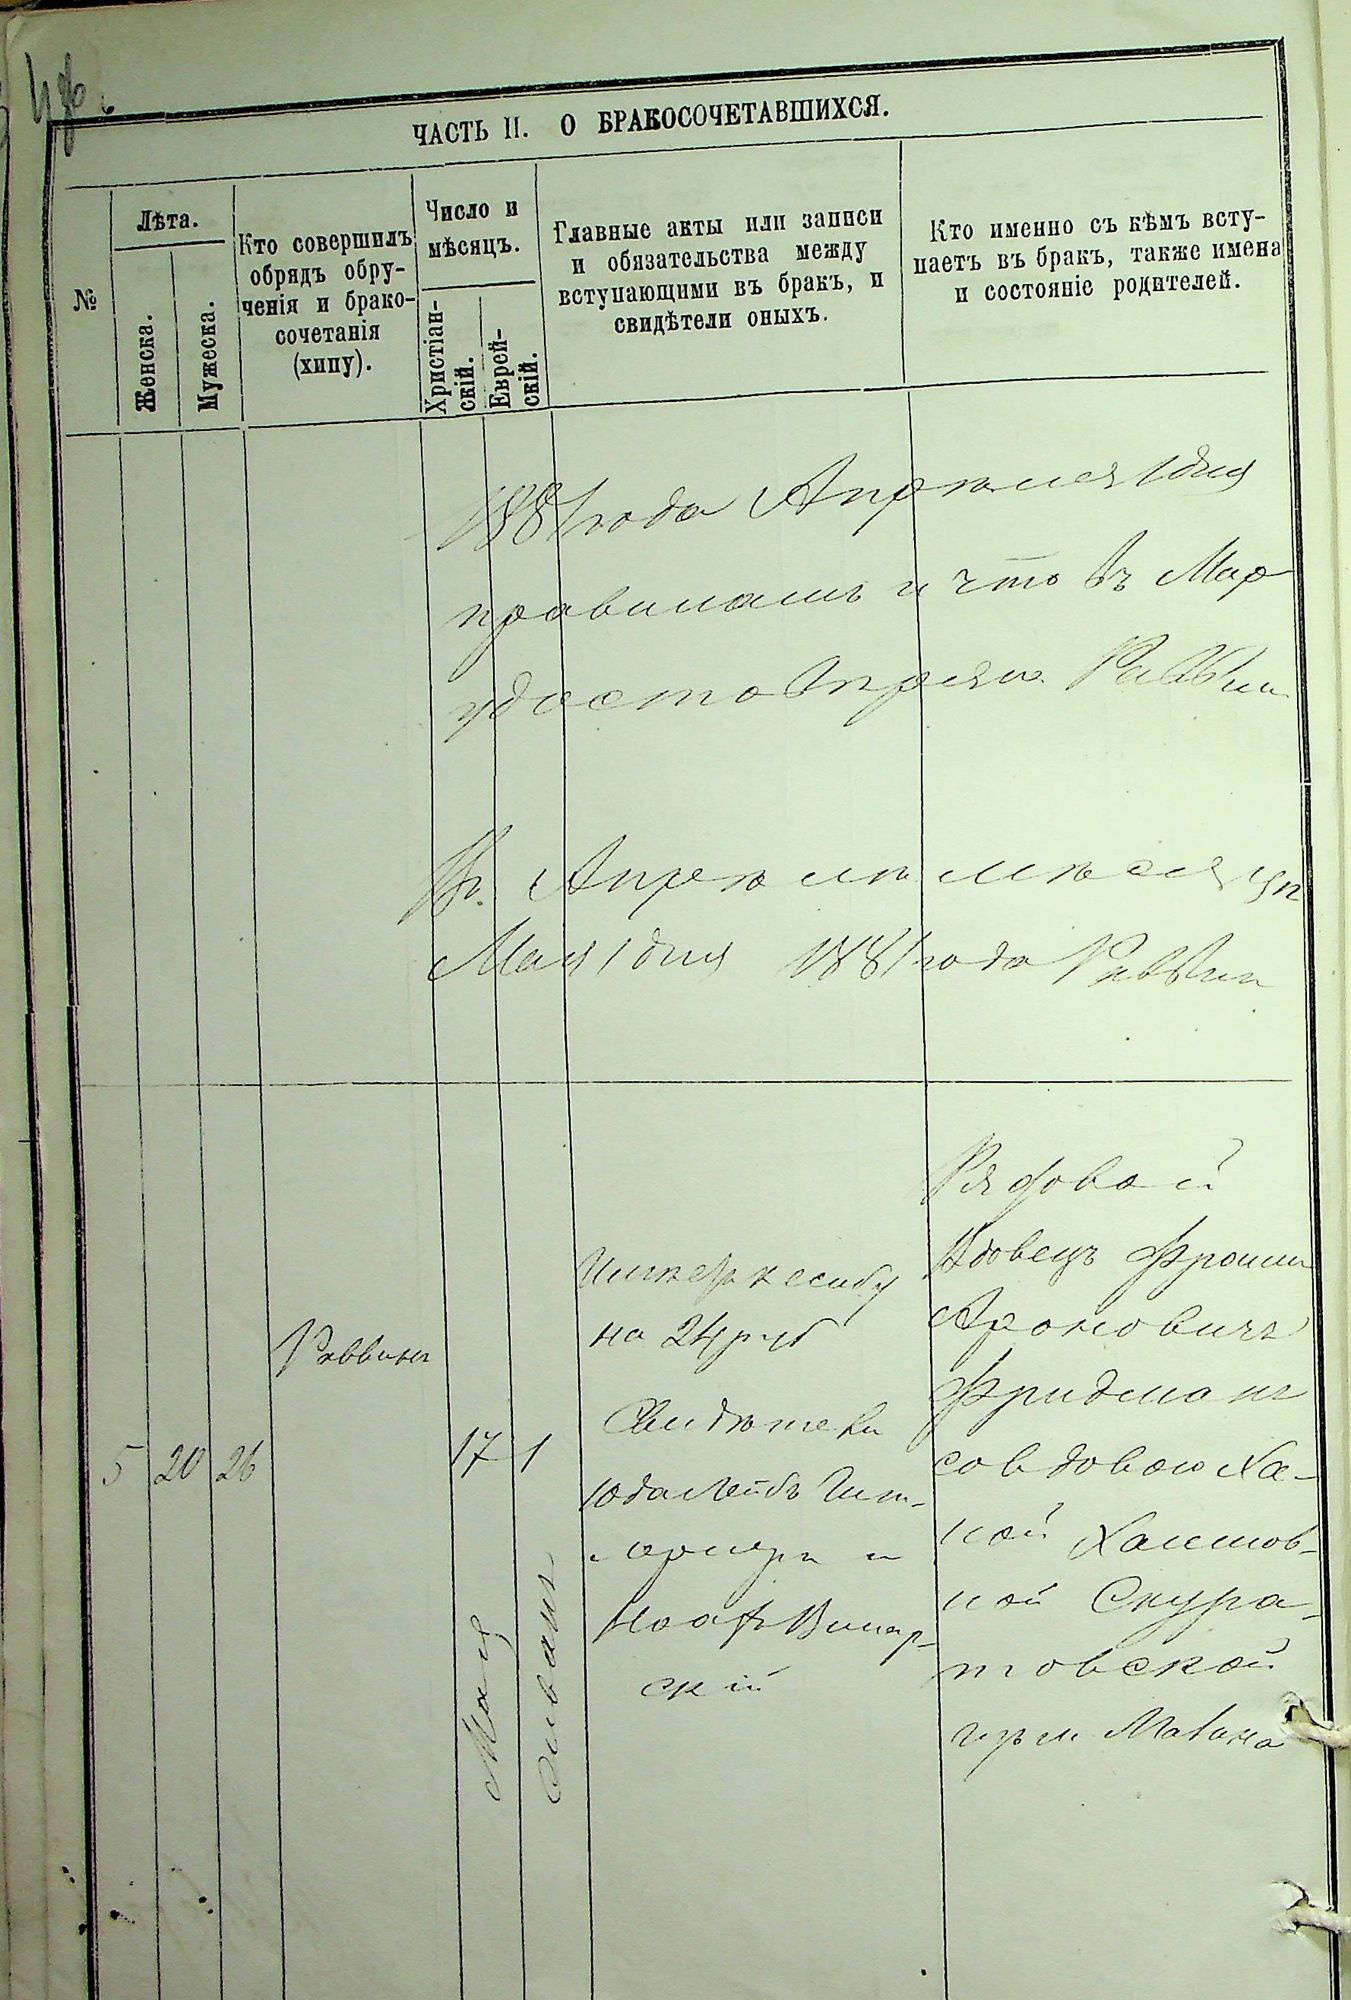 ЧАСТЬ II. О БРАКОСОЧЕТАВШИХСЯ.
№
Лѣта.
Женска.
Мужеска.
Кто совершилъ
обрядъ обру-
ченія и брако-
сочетанія
(хипу).
Число и
мѣсяцъ.
Христіан-
скій.
Еврей-
скій.
Главные акты или записи
и обязательства между
вступающими въ бракъ, и
свидѣтели оныхъ.
Кто именно съ кѣмъ всту-
паетъ въ бракъ, также имена
и состояніе родителей.
1881 года Апреля 1 дня
правиламъ и что въ Мар
удостовѣряю Раввин
Въ Апрелѣ месяцѣ
Мая 1 дня 1881 года Раввин
5
20
26
Раввинъ
17
Мая
1
Сивана
на 24 руб
Свидѣтели
Юда Лейбъ
и
Винар-
скій
Рядовой
Вдовецъ Фроим
Ароновичъ
Фридманъ
со вдовою Ха-
ной Хаимов-
ной Скура-
товской